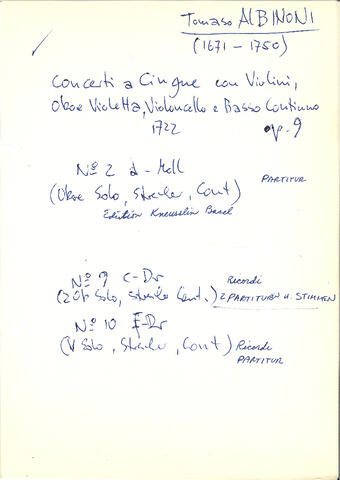 Tomaso ALBINONI
(1671 – 1750)
Concerti a Cinque con Violini,
Oboe Violetta, Violoncello e Basso Continuo
1722 op. 9
No 2 d-Moll PARTITUR
(Oboe Solo, Streicher, Cont)
Edition Kneusslin Basel
No 9 C-Dr Ricordi
(2 Ob Solo, Streicher Cont.) 2 PARTITUREN U. STIMMEN
No 10 F-Dr
(V Solo, Streicher, Cont) Ricordi
PARTITUR